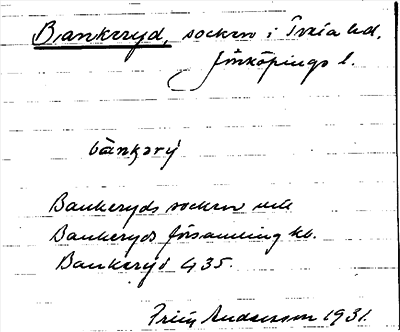 Bankeryd, socken i Tveta hd.
Jönköpings l.
bàŋkəry
Bankeryds socken och
Bankeryds församling kb.
Bankeryd 435.
Andersson 1931.